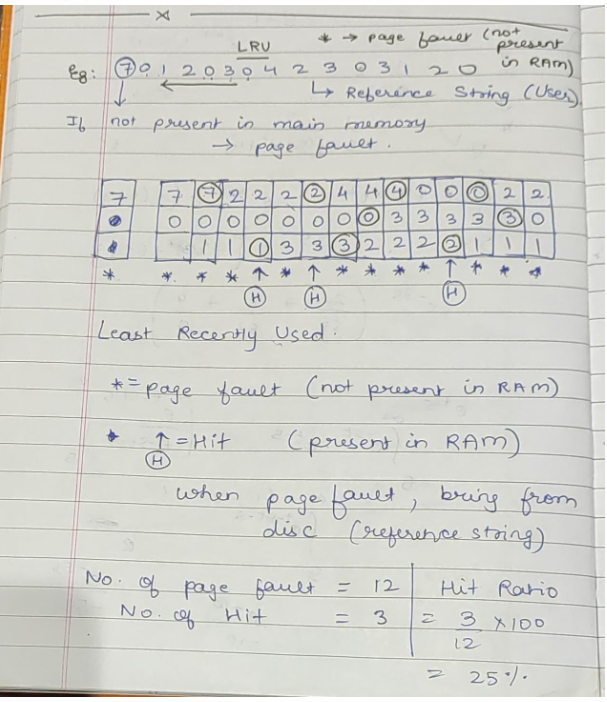 LRU * → page fauer (not
present
in RAM)
Eg: 7 0 1 2 0 3 0 4 2 3 0 3 1 2 0
↳ Reference String (User)
If not present in main memory
→ page fauet.
7 7 7 2 2 2 2 4 4 4 0 0 0 2 2
0 0 0 0 0 0 0 0 3 3 3 3 3 0
1 1 1 3 3 3 2 2 2 2 1 1 1
* * * * ↑ * ↑ * * * * ↑ * * *
H H H
Least Recently Used.
*= page fault (not present in RAM)
* ↑ = Hit (present in RAM)
H
when page fauet, bring from
disc (reference string)
No. of page fault = 12 Hit Ratio
No. of Hit = 3 = 3 × 100
12
= 25%